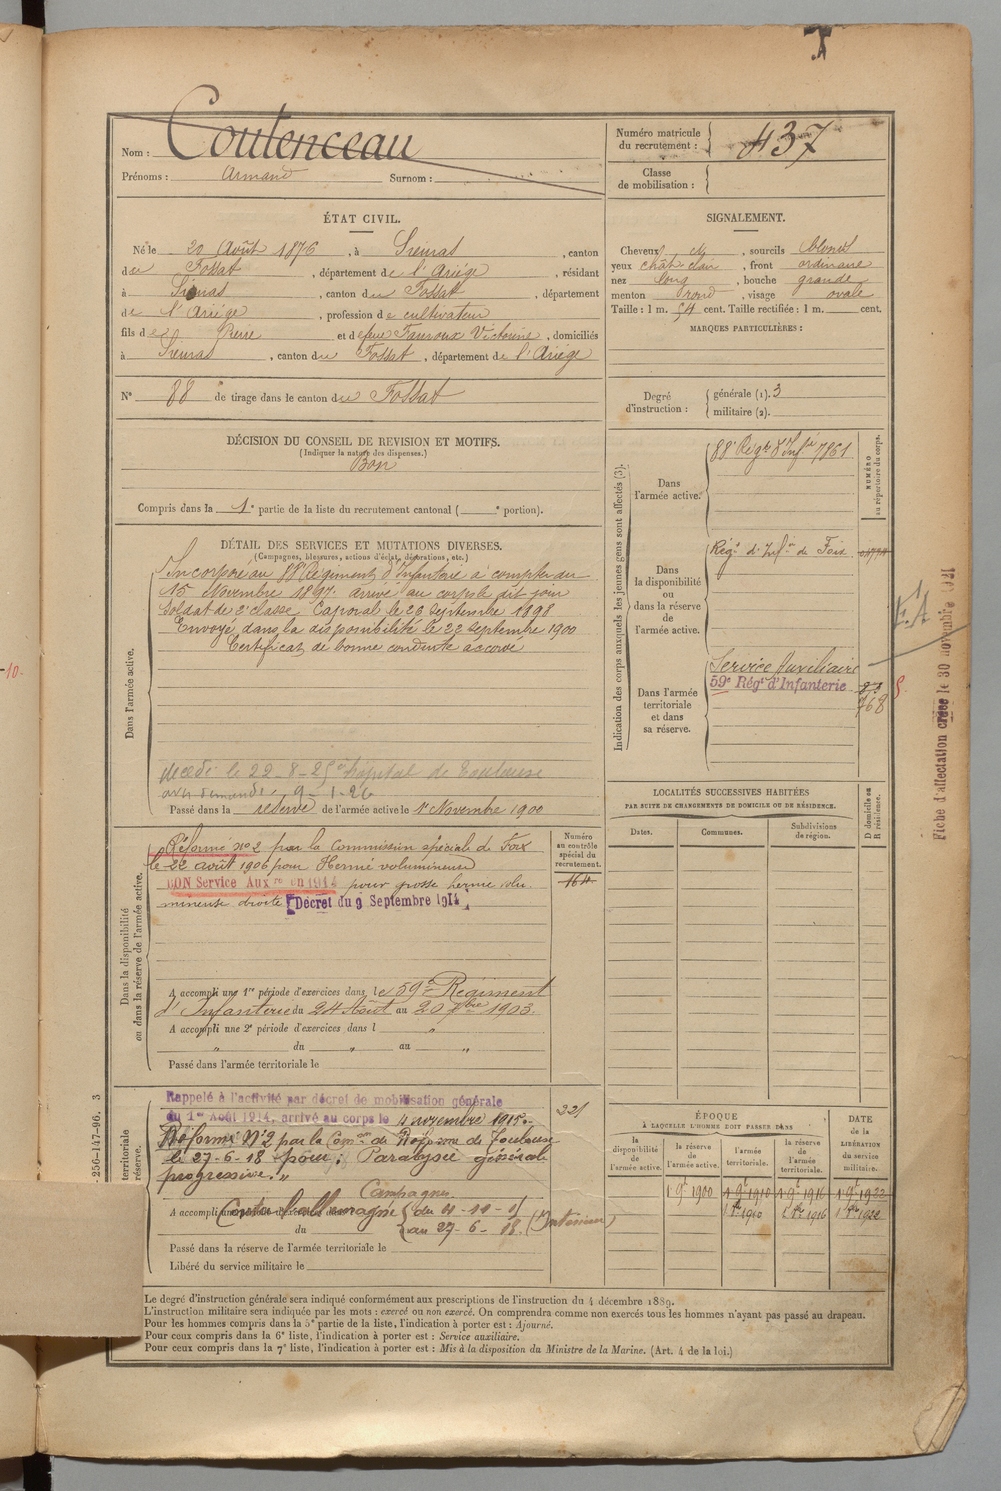 Nom : Coutenceau
Prénoms : Armand Surnom :
Numéro matricule du recrutement : 437
Classe de mobilisation :
ÉTAT CIVIL.
Né le 20 Août 1876, à Sieuras, canton
du Fossat, département de l'Ariège, résidant
à Sieuras, canton du Fossat, département
de l'Ariège, profession de cultivateur
fils de Pierre et de feue Fauroux Victorine, domiciliés
à Sieuras, canton du Fossat, département de l'Ariège
N° 88 de tirage dans le canton du Fossat
SIGNALEMENT.
Cheveux ch, sourcils blonds
yeux chât clair, front ordinaire
nez long, bouche grande
menton rond, visage ovale
Taille : 1 m. 54 cent. Taille rectifiée : 1 m. cent.
MARQUES PARTICULIÈRES :
Degré d'instruction : générale (1). 3
militaire (2).
DÉCISION DU CONSEIL DE REVISION ET MOTIFS.
(Indiquer la nature des dispenses.)
Bon
Compris dans la 1e partie de la liste du recrutement cantonal ( e portion).
DÉTAIL DES SERVICES ET MUTATIONS DIVERSES.
(Campagnes, blessures, actions d'éclat, décorations, etc.)
Dans l'armée active.
Incorporé au 88e Régiment d'Infanterie à compter du
15 Novembre 1897. arrivé au corps le dit jour
Soldat de 2e classe. Caporal le 23 Septembre 1898
Envoyé dans la disponibilité le 22 septembre 1900
Certificat de bonne conduite accordé
décédé le 22-8-25 hôpital de Toulouse
9-1-26
Passé dans la réserve de l'armée active le 1er Novembre 1900
Indication des corps auxquels les jeunes gens sont affectés (3).
NUMÉRO au répertoire du corps.
Dans l'armée active.
88e Régt d'Infie 7861
Dans la disponibilité ou dans la réserve de l'armée active.
Régt d'Infie de Foix
Dans l'armée territoriale et dans sa réserve.
Service Auxiliaire
59e Régt d'Infanterie
768
Fiche d'affectation créée le 30 novembre 1921
-10-
Dans la disponibilité ou dans la réserve de l'armée active.
Réformé n°2 par la Commission spéciale de Foix
le 22 août 1906 pour Hernie volumineuse
BON Service Auxre en 1914 pour grosse hernie volu
mineuse droite Décret du 9 Septembre 1914
Numéro au contrôle spécial du recrutement.
164
A accompli une 1re période d'exercices dans le 59e Régiment
d'Infanterie du 24 Août au 20 7bre 1903.
A accompli une 2e période d'exercices dans l "
" du " au "
Passé dans l'armée territoriale le
LOCALITÉS SUCCESSIVES HABITÉES
PAR SUITE DE CHANGEMENTS DE DOMICILE OU DE RÉSIDENCE.
Dates. Communes. Subdivisions de région. D domicile ou R résidence.
256-147-96. 3
territoriale
réserve.
Rappelé à l'activité par décret de mobilisation générale
du 1er Août 1914, arrivé au corps le 4 novembre 1915.
221
Réformé N°2 par la Comon de Réforme de Toulouse
le 27-6-18 pour : Paralysie générale
progressive. "
Campagne
A accompli
Contre l'allemagne du 4-11-15
du au 27-6-18. (Intérieur)
Passé dans la réserve de l'armée territoriale le
Libéré du service militaire le
ÉPOQUE
À LAQUELLE L'HOMME DOIT PASSER DANS
la disponibilité de l'armée active.
la réserve de l'armée active.
l'armée territoriale.
la réserve de l'armée territoriale.
DATE de la LIBÉRATION du service militaire.
1 9e 1900 1 9e 1910 1 9e 1916 1 9e 1922
1910 1916 1922
Le degré d'instruction générale sera indiqué conformément aux prescriptions de l'instruction du 4 décembre 1889.
L'instruction militaire sera indiquée par les mots : exercé ou non exercé. On comprendra comme non exercés tous les hommes n'ayant pas passé au drapeau.
Pour les hommes compris dans la 5e partie de la liste, l'indication à porter est : Ajourné.
Pour ceux compris dans la 6e liste, l'indication à porter est : Service auxiliaire.
Pour ceux compris dans la 7e liste, l'indication à porter est : Mis à la disposition du Ministre de la Marine. (Art. 4 de la loi.)